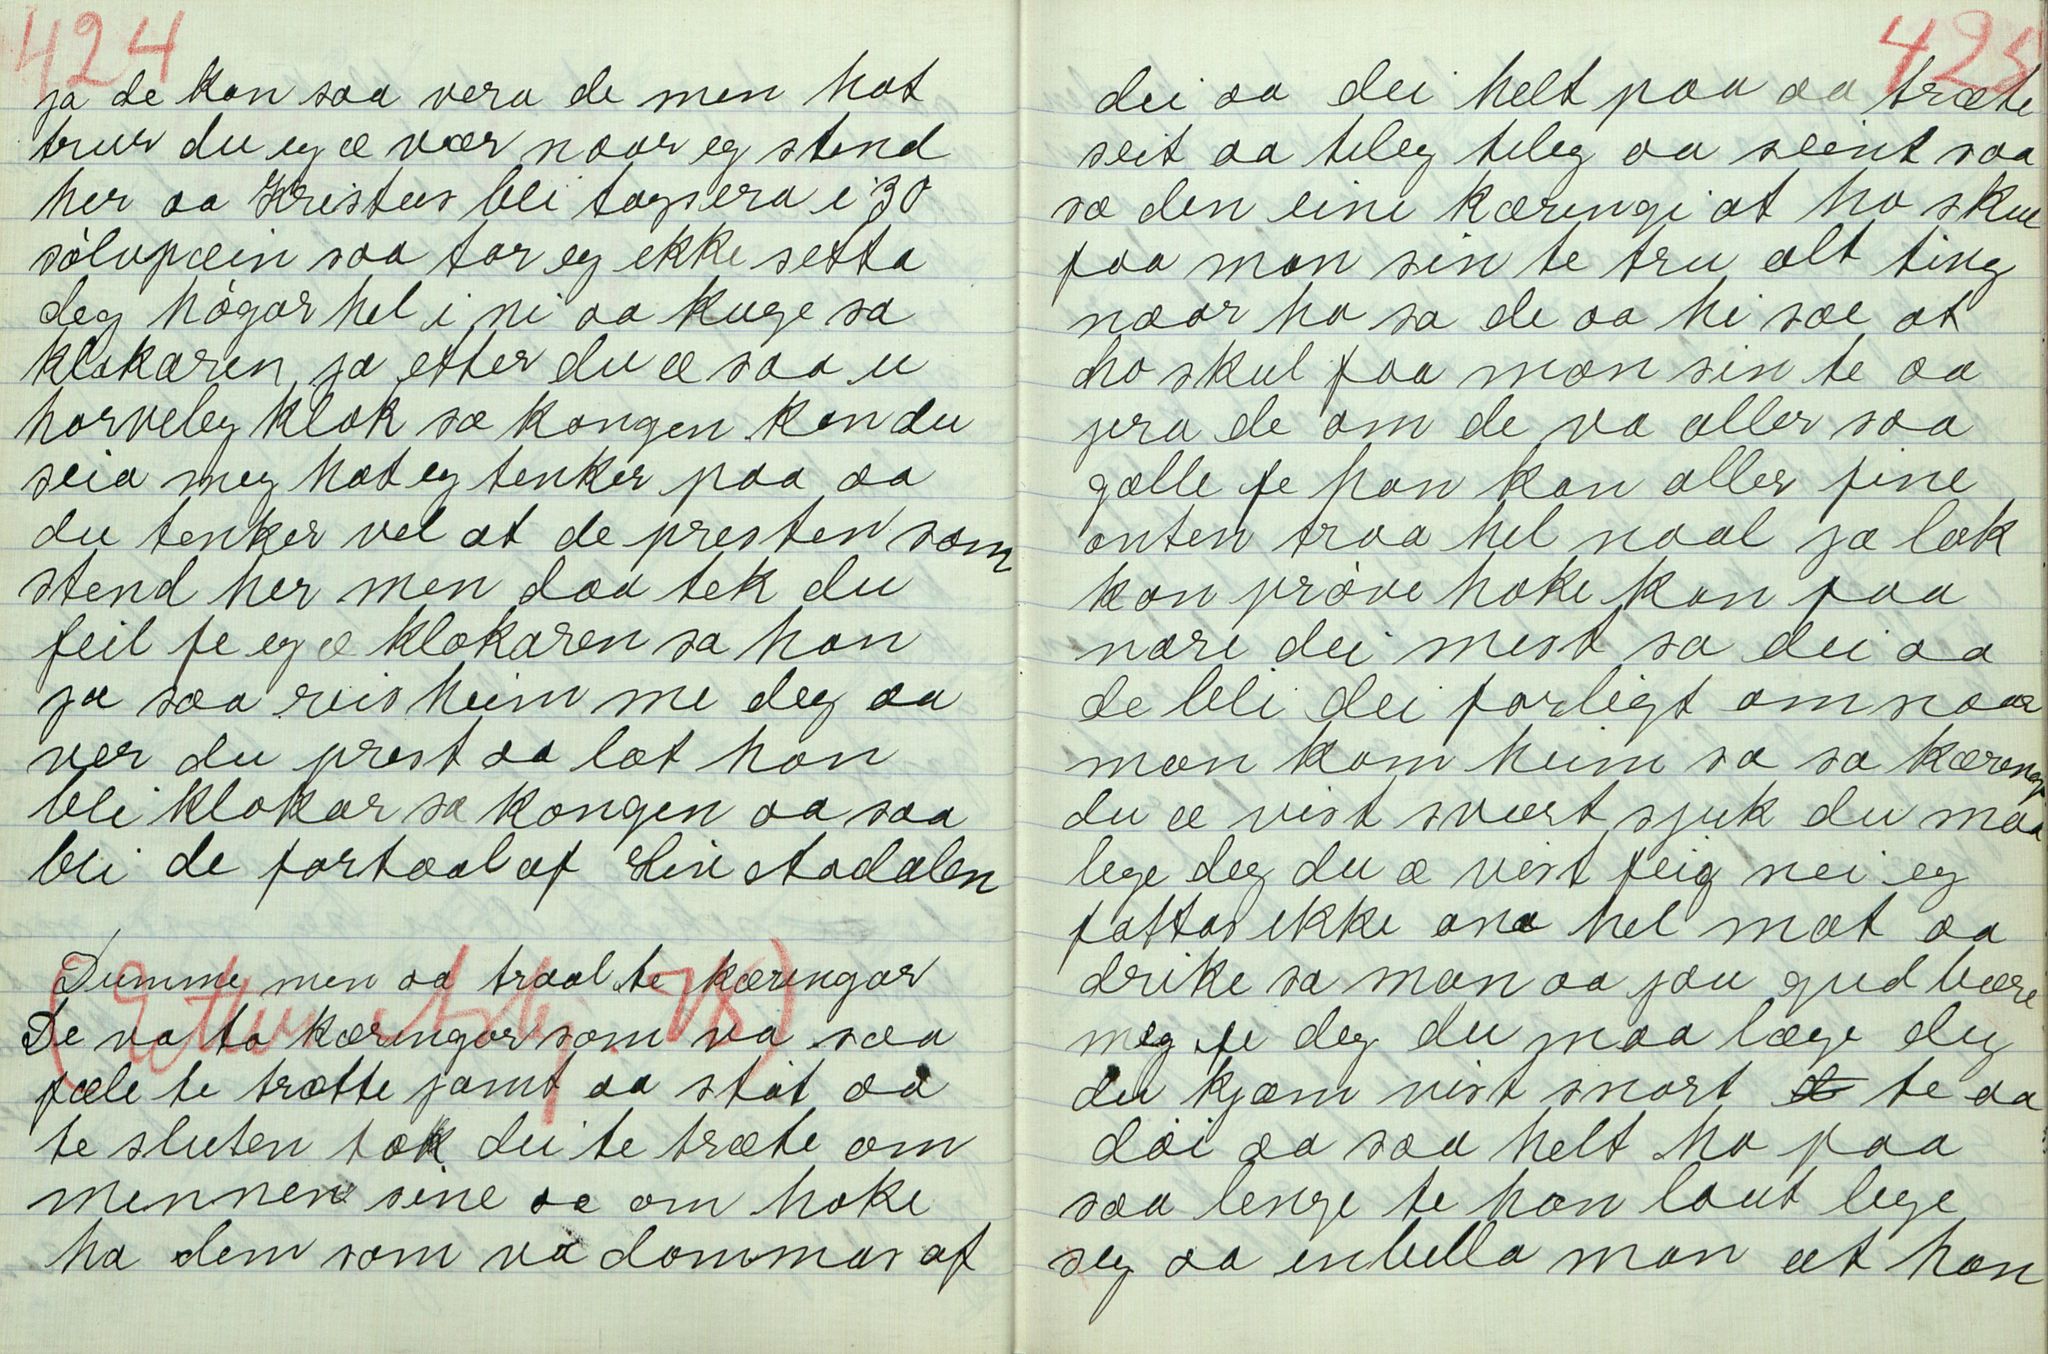 424
ja de kan saa vera de men hat
trur du eg æ vær naar eg stend
her aa Kristus blei tagsera i 30
sølvpæin saa tor eg ikke setta
deg høgar hel i ni aa kuge sa
klokaren ja etter du æ saa u
horveleg klok sa kongen kan du
seia meg hat eg tenker paa aa
du tenker vel at de presten som
stend her men daa tek du
feil fe eg æ klokaren sa han
ja saa reis heim me deg aa
ver du prest aa læt han
bli klokar sa kongen aa saa
blei de fortaal af Liv Aadalen

Dumme men aa traal te kæringar
De va to kæringar som va saa
fæle te trætte jamt aa støt aa
te sluten tok dei te træte om
mennene sine aa om hoke
ha dem som va dommas af
425
dei aa dei helt paa aa træte
seit aa teleg teleg aa seint saa
sa den eine kæringi at ho skul
faa man sin te tru alt ting
naar ho sa de aa hi sae at
ho skul faa man sin te aa
jera de om de va aller saa
gælle fe han kan aller fine
anten traa hel naal ja læk
kan prøve hoke kan faa
nare dei mest sa dei aa
de blei dei forligt om naar
man kom heim sa sa kæringi
du æ vist svært sjuk du maa
lege deg du æ vist feig nei eg
fattas ikke ana hel mat aa
drike sa man aa jau gud bære
meg fe deg du maa læge deg
du kjæm vist snart te aa
døi aa saa helt ho paa
saa lenge te han laut lege
seg aa inbilla man at han